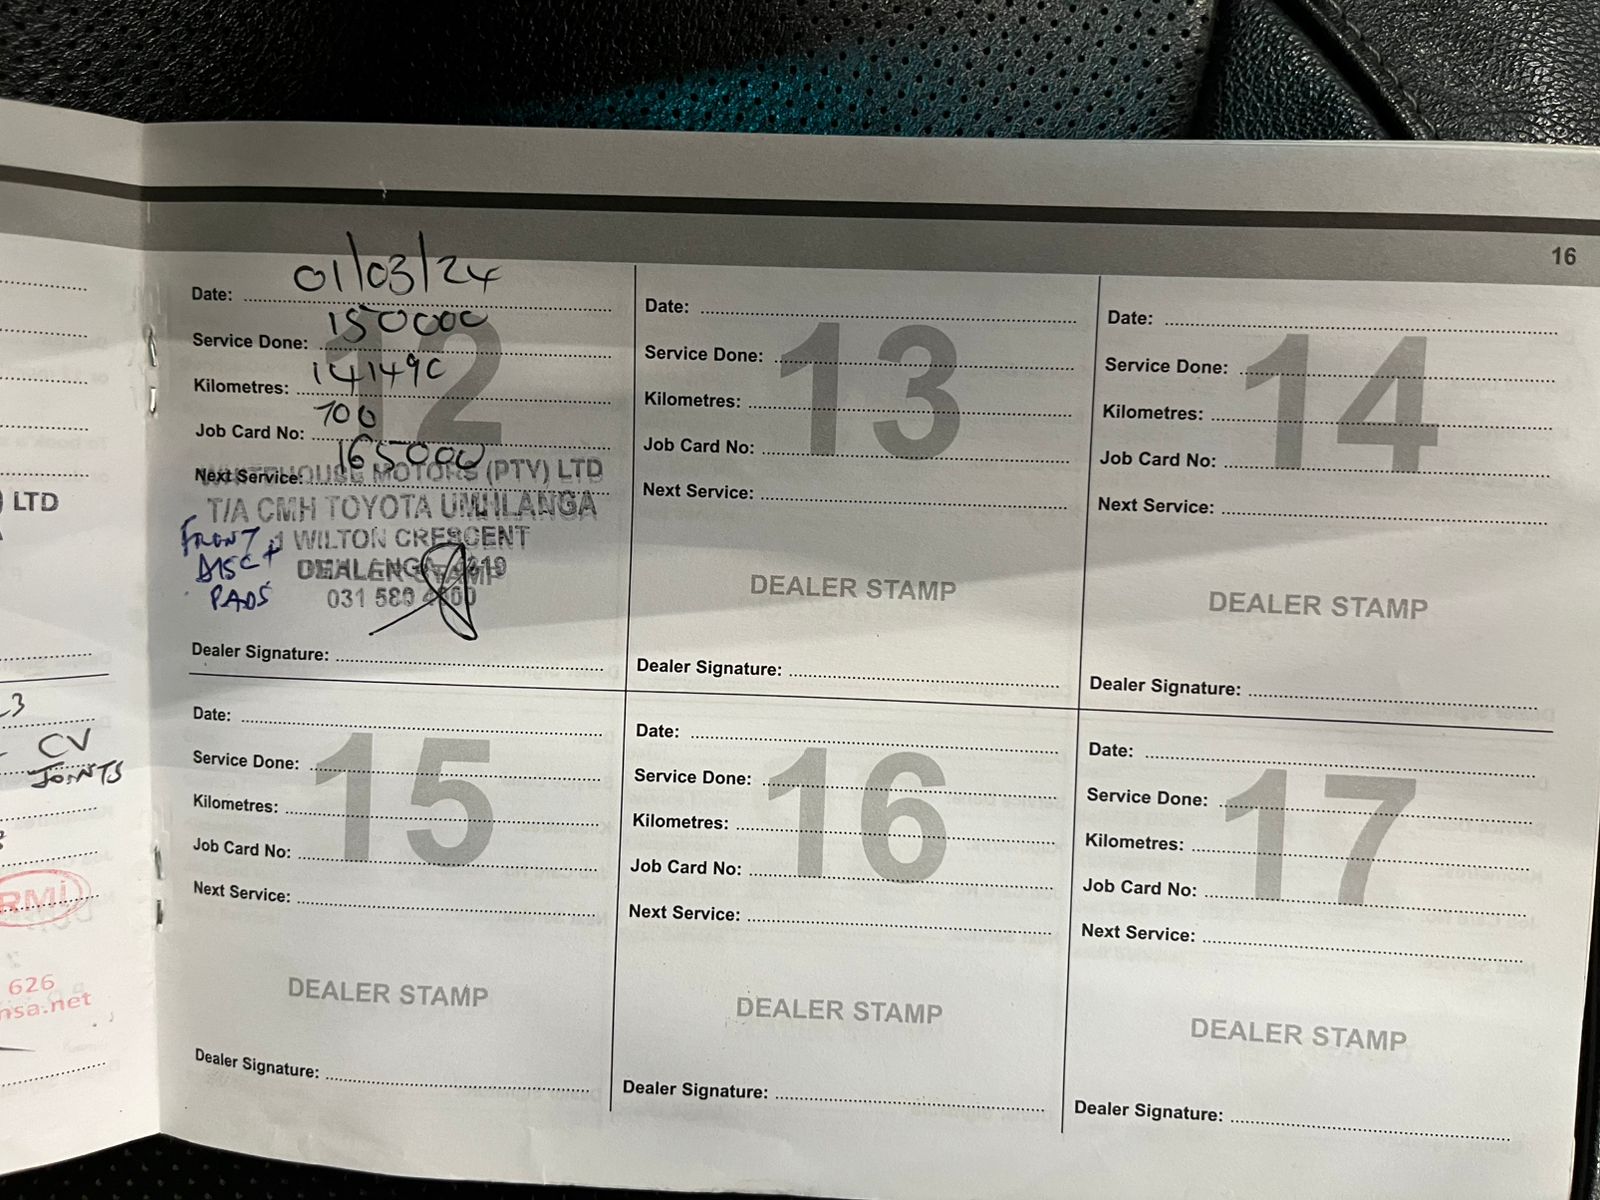 LTD
23
CV
JOINTS
RMi
626
nsa.net
16
Date: 01/03/24
Service Done: 150000
12
Kilometres: 141490
Job Card No: 700
Next Service: 165000
MOTORS (PTY) LTD
T/A CMH TOYOTA UMHLANGA
1 WILTON CRESCENT
031 580
FRONT
DISC +
PADS
Dealer Signature:
Date:
Service Done:
13
Kilometres:
Job Card No:
Next Service:
DEALER STAMP
Dealer Signature:
Date:
Service Done:
14
Kilometres:
Job Card No:
Next Service:
DEALER STAMP
Dealer Signature:
Date:
Service Done:
15
Kilometres:
Job Card No:
Next Service:
DEALER STAMP
Dealer Signature:
Date:
Service Done:
16
Kilometres:
Job Card No:
Next Service:
DEALER STAMP
Dealer Signature:
Date:
Service Done:
17
Kilometres:
Job Card No:
Next Service:
DEALER STAMP
Dealer Signature: